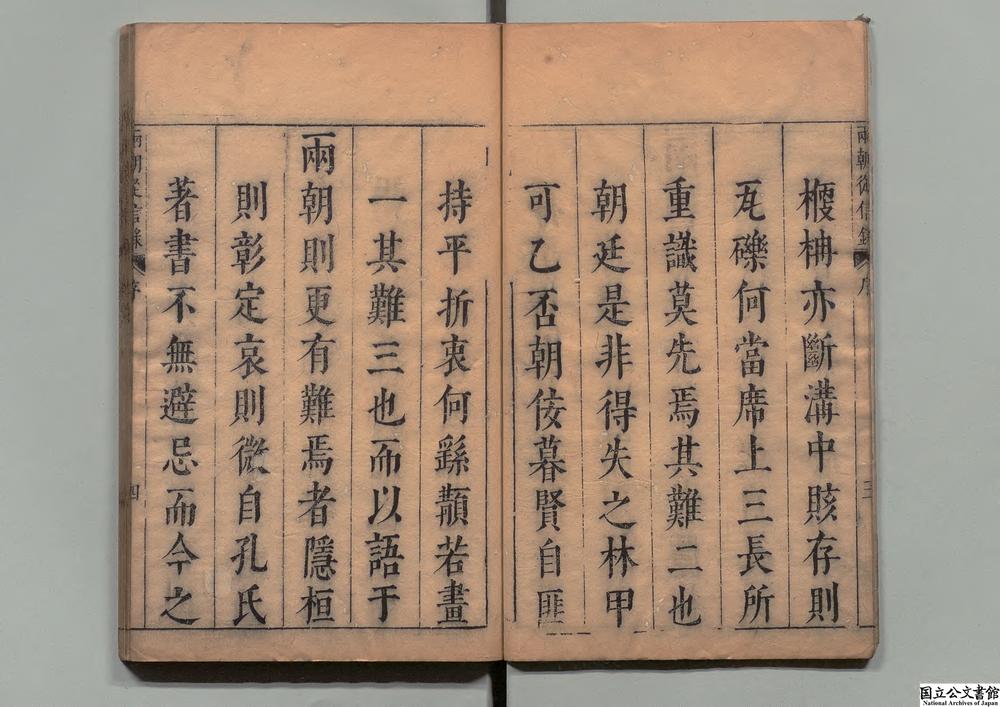 兩朝從信錄 序 三
楩柟亦斷溝中賅存則
瓦礫何當席上三長所
重識莫先焉其難二也
朝廷是非得失之林甲
可乙否朝佞暮賢自匪
持平折衷何繇顜若畫
一其難三也而以語于
兩朝則更有難焉者隱桓
則彰定哀則微自孔氏
著書不無避忌而今之
兩朝從信錄 序 四
国立公文書館
National Archives of Japan